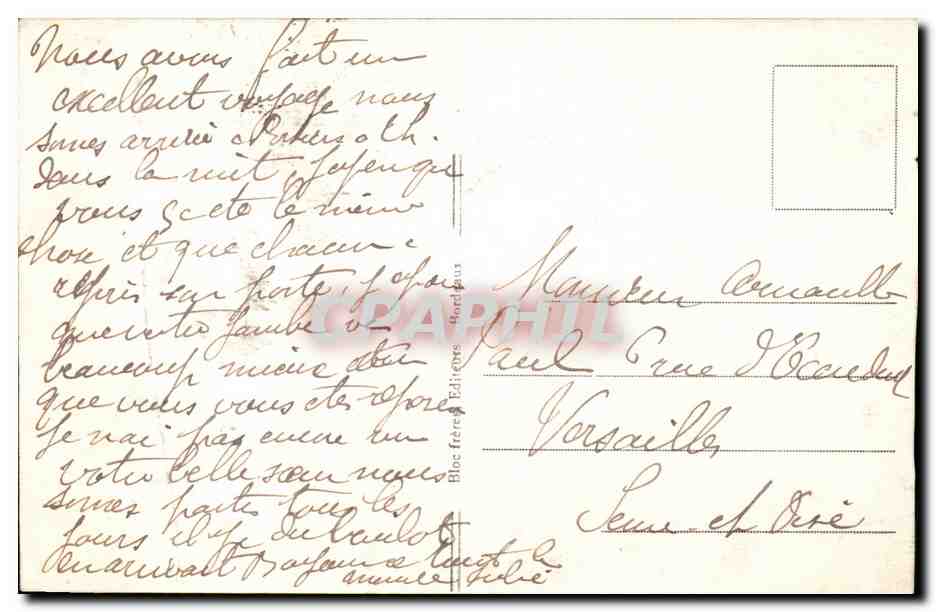 Nous avons fait un
excellent voyage nous
somes arrivée a Poitiers a h.
dans la nuit, que
vous ça ete le même
chose et que chacun a
repris sur porte, j'espere
que votre jambe va
beaucoup mieux
que vous vous etes reposé
Je nai pas encore vu
votre belle sœur nous
somes partes tous les
jours il y a du boulot
en arrivant
Bloc frères Editeurs - Bordeaux
CPAPHIL
Monsieur Arnault
Paul 6 rue
Versailles
Seine et Oise